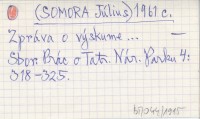 (SOMORA Július) 1961 c.
Zpráva o výskume... —
Sbor. Prác o Tatr. Nár. Parku 4:
318-325.